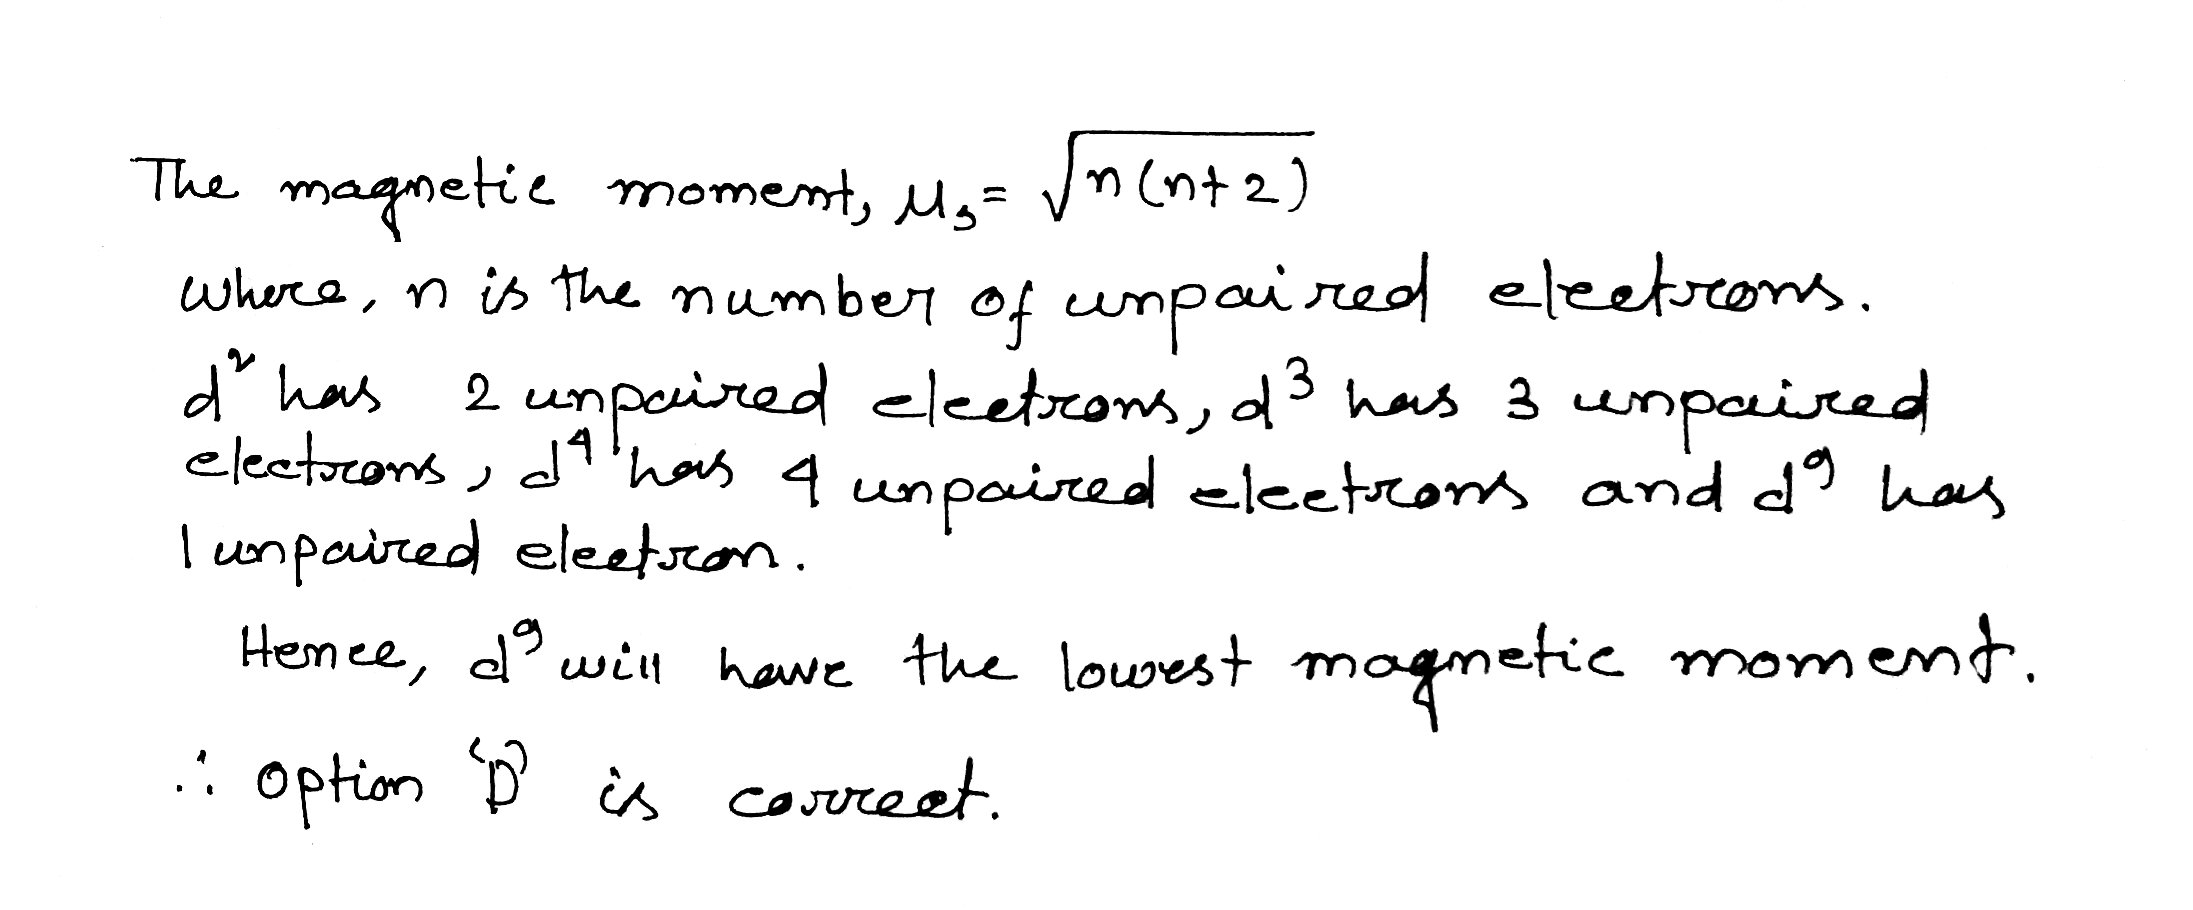 The magnetic moment, μₛ = √n(n+2)
where, n is the number of unpaired electrons.
d² has 2 unpaired electrons, d³ has 3 unpaired
electrons, d⁴ has 4 unpaired electrons and d⁹ has
1 unpaired electron.
Hence, d⁹ will have the lowest magnetic moment.
∴ Option 'D' is correct.